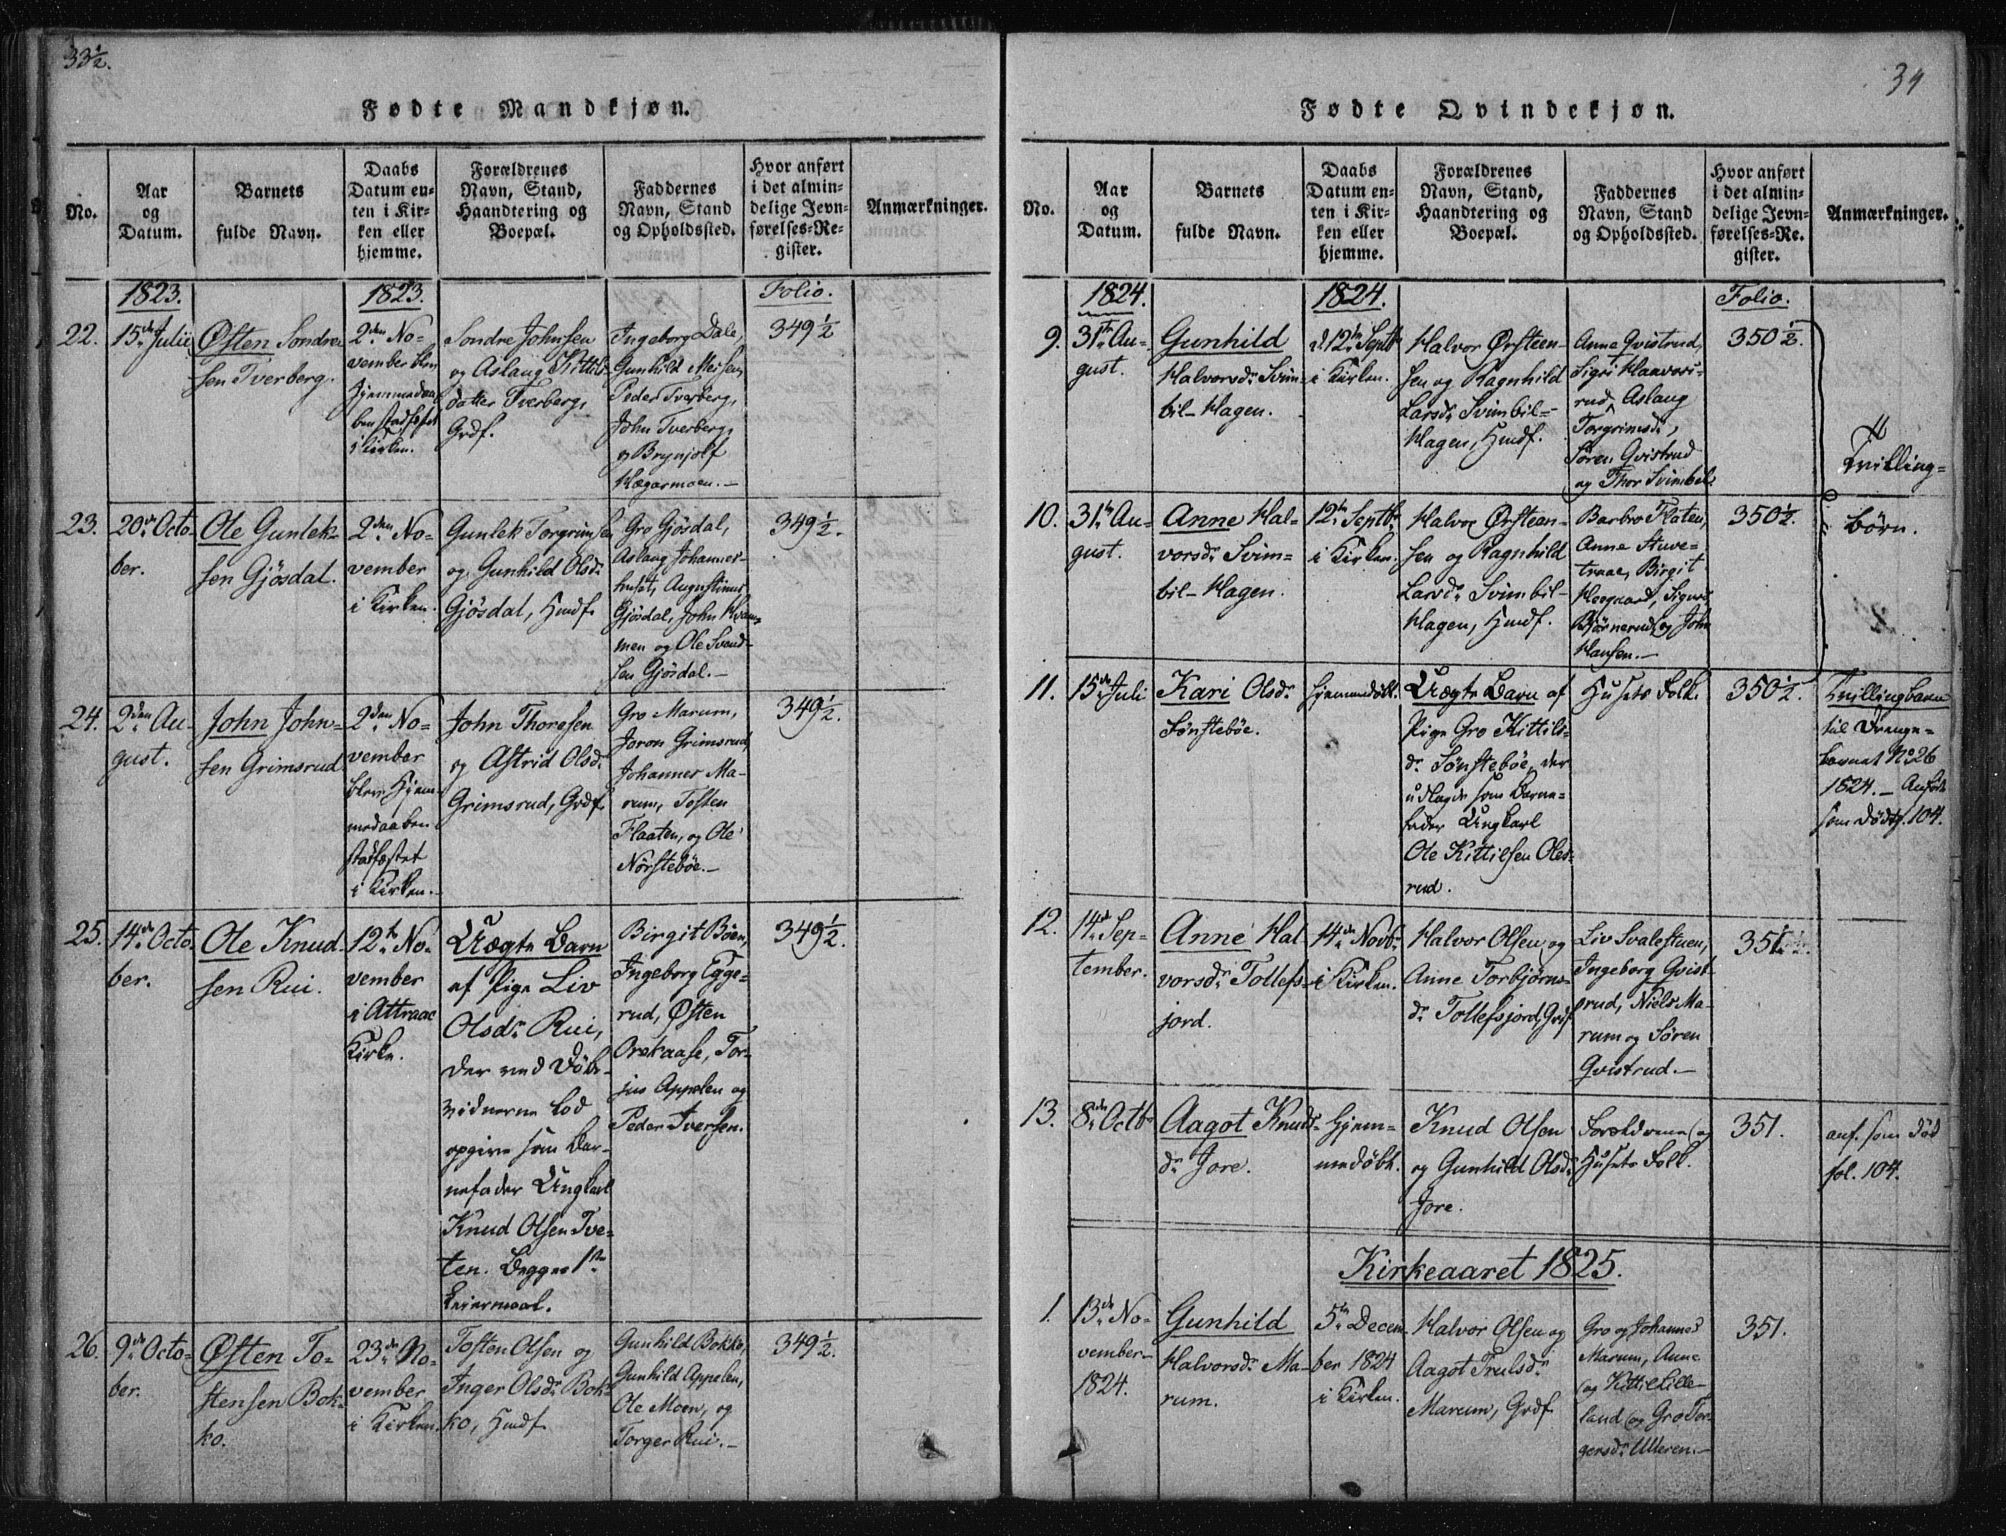 33½.
Fødte Mandkjøn.
No.
Aar
og
Datum.
Barnets
fulde Navn.
Daabs
Datum en-
ten i Kir-
ken eller
hjemme.
Forældrenes
Navn, Stand,
Haandtering og
Boepæl.
Faddernes
Navn, Stand
og Opholdssted.
Hvor anført
i det almin-
delige Jevn-
førelses-Re-
gister.
Anmærkninger.
1823.
1823.
Folio.
22.
15de Julii
Østen Sondre-
sen Tverberg.
2den No-
vember blev
Hjemmedaa-
ben stadfæstet
i Kirken.
Sondre Johnsen
og Aslaug Kittils-
datter Tverberg,
Grdf.
Ingeborg Dale,
Gunhild Meisen,
Peder Tverberg,
John Tverberg,
og Brynjolf
Hægarmoen.-
349½
23.
20de Octo-
ber.
Ole Gunlek-
sen Gjøsdal.
2den No-
vember
i Kirken.
Gunlek Torgrimsen
og Gunhild Olsdr
Gjøsdal, Hmdf.
Gro Gjøsdal,
Aslaug Johannes-
huset, Augustinus
Gjøsdal, John Hvam-
men og Ole Svend-
sen Gjøsdal.-
349½.
24.
2den Au-
gust.
John John-
sen Grimsrud
2den No-
vember
blev Hjem-
medaaben
stadfæstet
i Kirken.
John Thoresen
og Astrid Olsdr
Grimsrud, Grdf.
Gro Marum,
Joron Grimsrud,
Johannes Ma-
rum, Tosten
Flaaten, og Ole
Nørstebøe.-
349½.
25.
14de Octo-
ber.
Ole Knud-
sen Rui.
12te No-
vember
i Attraae
Kirke.
Uægte Barn
af Pige Liv
Olsdr Rui,
der ved Døbe-
vidnerne lod
opgive som Bar-
nefader Ungkarl
Knud Olsen Tve-
ten. Begges 1ste
Leiermaal.
Birgit Bøen,
Ingeborg Egge-
rud, Østen
Orekaase, Tor-
jus Appelen og
Peder Iversen.
349½.
26.
9de Octo-
ber.
Østen To-
stensen Bok-
ko.
23de No-
vember
i Kirken.
Tosten Olsen og
Inger Olsdr Bok-
ko, Hmdf.
Gunhild Bokko,
Gunhild Appelen,
Ole Moen, og
Torger Rui.-
349½.
34
Fødte Qvindekjøn.
No.
Aar
og
Datum.
Barnets
fulde Navn.
Daabs
Datum en-
ten i Kir-
ken eller
hjemme.
Forældrenes
Navn, Stand,
Haandtering og
Boepæl.
Faddernes
Navn, Stand
og Opholdssted.
Hvor anført
i det almin-
delige Jevn-
førelses-Re-
gister.
Anmærkninger.
1824.
1824.
Folio.
9.
31te Au-
gust.
Gunhild
Halvorsdr Svim-
bil-Hagen.
d 12te Septbr
i Kirken.
Halvor Ørsteen-
sen og Ragnhild
Larsdr Svimbil-
Hagen, Hmdf.
Anne Qvistrud,
Sigri Haavers-
rud, Aslaug
Torgrimsdr,
Søren Qvistrud
og Thor Svimbil.
350½.
Tvilling-
børn.
10.
31te Au-
gust.
Anne Hal-
vorsdr Svim-
bil-Hagen.
12te Septbr
i Kirken.
Halvor Ørsteen-
sen og Ragnhild
Larsdr Svimbil-
Hagen, Hmdf.
Barbro Flaten,
Anne Stuve-
traae, Birgit
Hougaard, Sigur
Bjørnerud, og John
Hansen.-
350½.
11.
15de Juli
Kari Olsdr
Sønstebøe.
hjemmedøbt.
Uægte Barn af
Pige Gro Kittils-
dr Sønstebøe, der
udlagde som Barne-
fader Ungkarl
Ole Kittilsen Oles-
rud.
Husets Folk.
350½.
Tvillingbarn
til Drenge-
barnet No 26
1824. - Anført
som Død fol. 104.
12.
14de Sep-
tember.
Anne Hal-
vorsdr Tollefs-
jord.
14de Novbr
i Kirken.
Halvor Olsen og
Anne Torbjørns-
dr Tollefsjord, Grdf
Liv Svalestuen,
Ingeborg Qvist-
rud, Niels Ma-
rum og Søren
Qvistrud.-
351.
13.
8de Octbr
Aagot Knuds-
dr Jore.
Hjem-
medøbt.
Knud Olsen
og Gunhild Olsdr
Jore.
Forældrene og
Husets Folk.
351.
anf. som død
fol. 104.
Kirkeaaret 1825.
1.
13de No-
vember
1824.
Gunhild
Halvorsdr Ma-
rum.
5te Decem-
ber 1824
i Kirken.
Halvor Olsen og
Aagot Trulsdr
Marum, Grdf
Gro og Johannes
Marum, Anne
og Kittil Lille-
land og Gro Tor-
gersdr Ulleren.-
351.